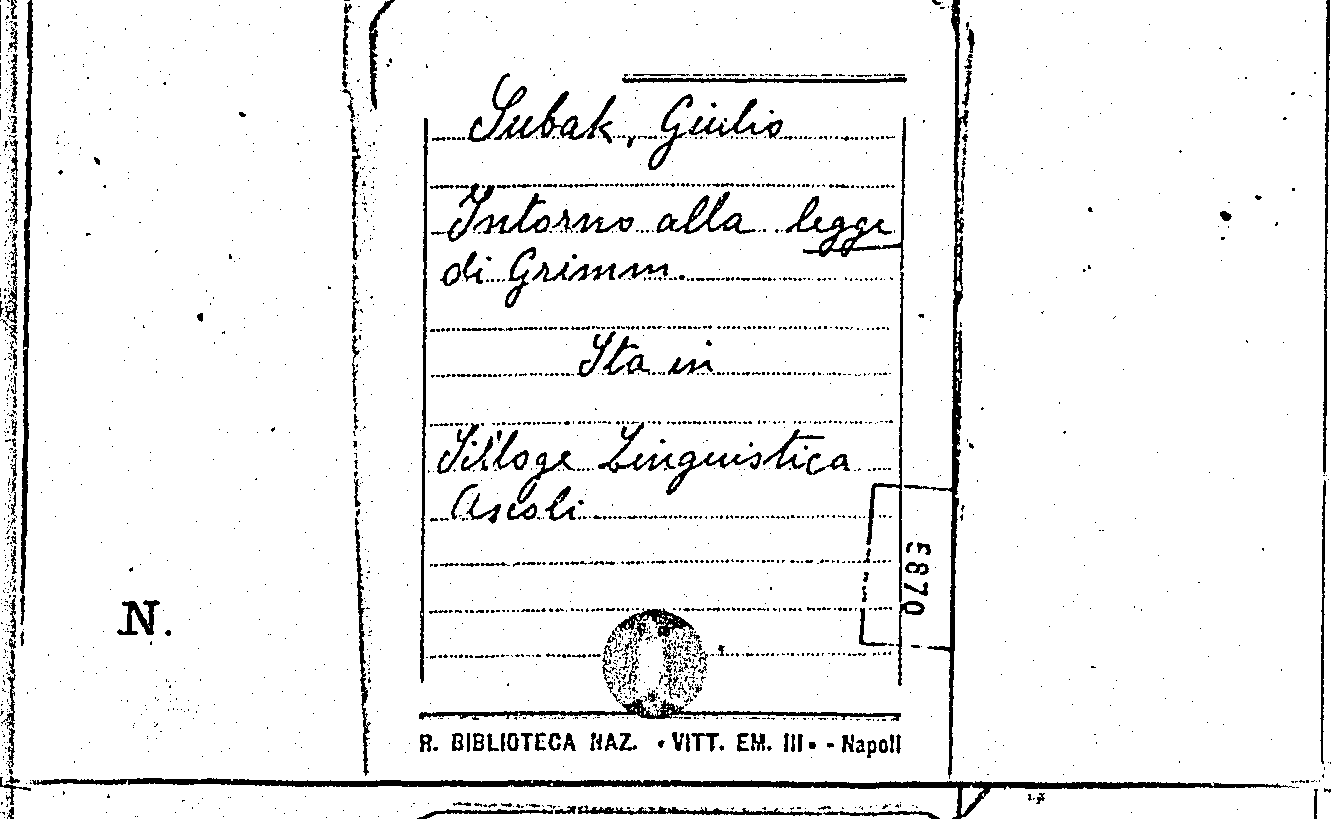 Subak, Giulio
Intorno alla legge
di Grimm.
Sta in
Silloge Linguistica
Ascoli
£870
N.
R. BIBLIOTECA NAZ. • VITT. EM. III • - Napoli